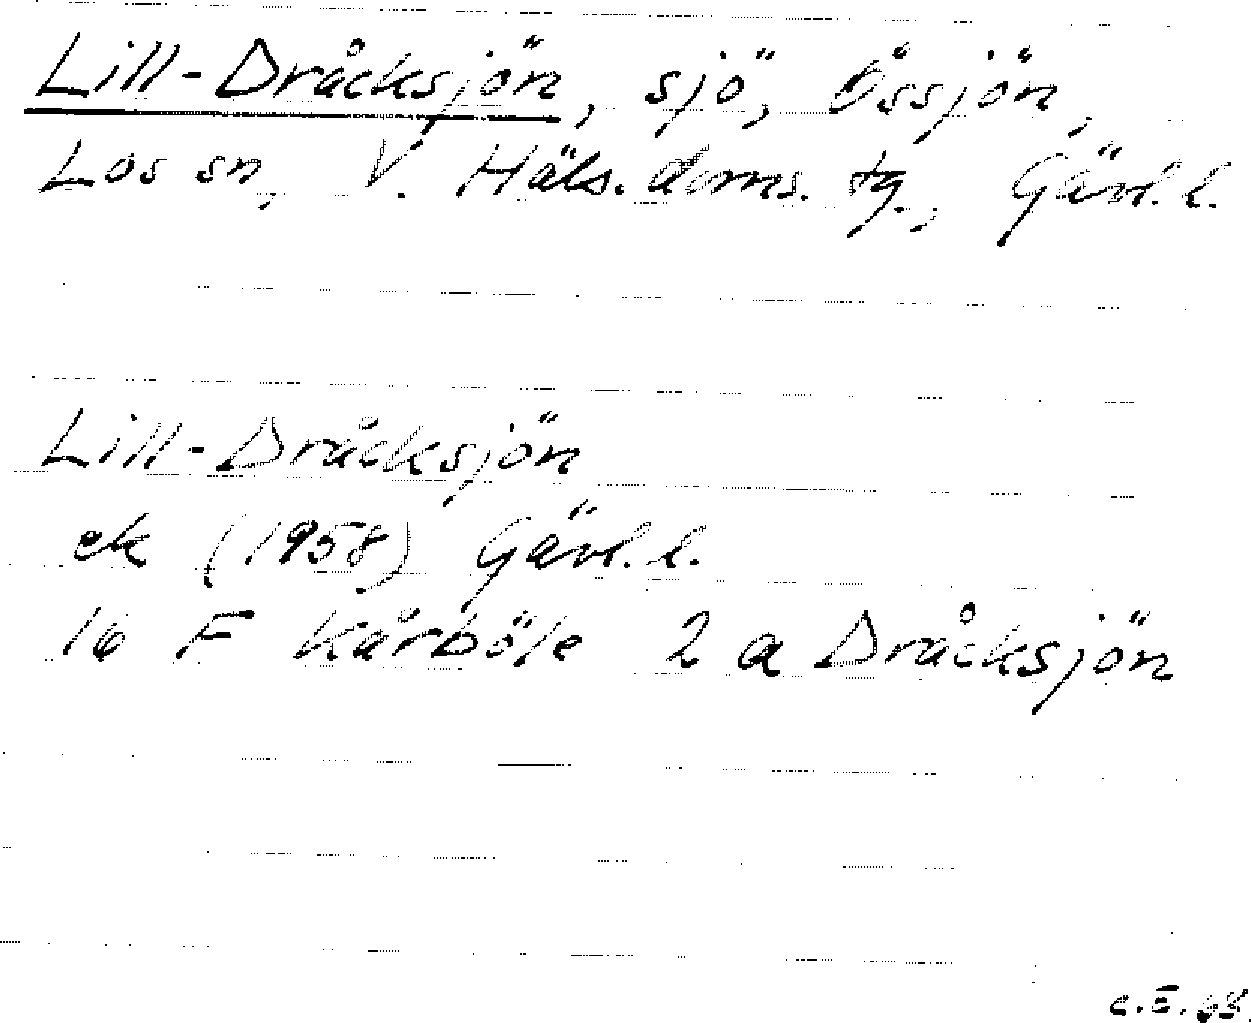 Lill-Dråcksjön, sjö, Össjön,
Los sn, V. Häls. doms. tg., Gävl. l.
Lill-Dråcksjön
ek (1958) Gävl. l.
16 F Kårböle 2 a Dråcksjön
C.E. 68.